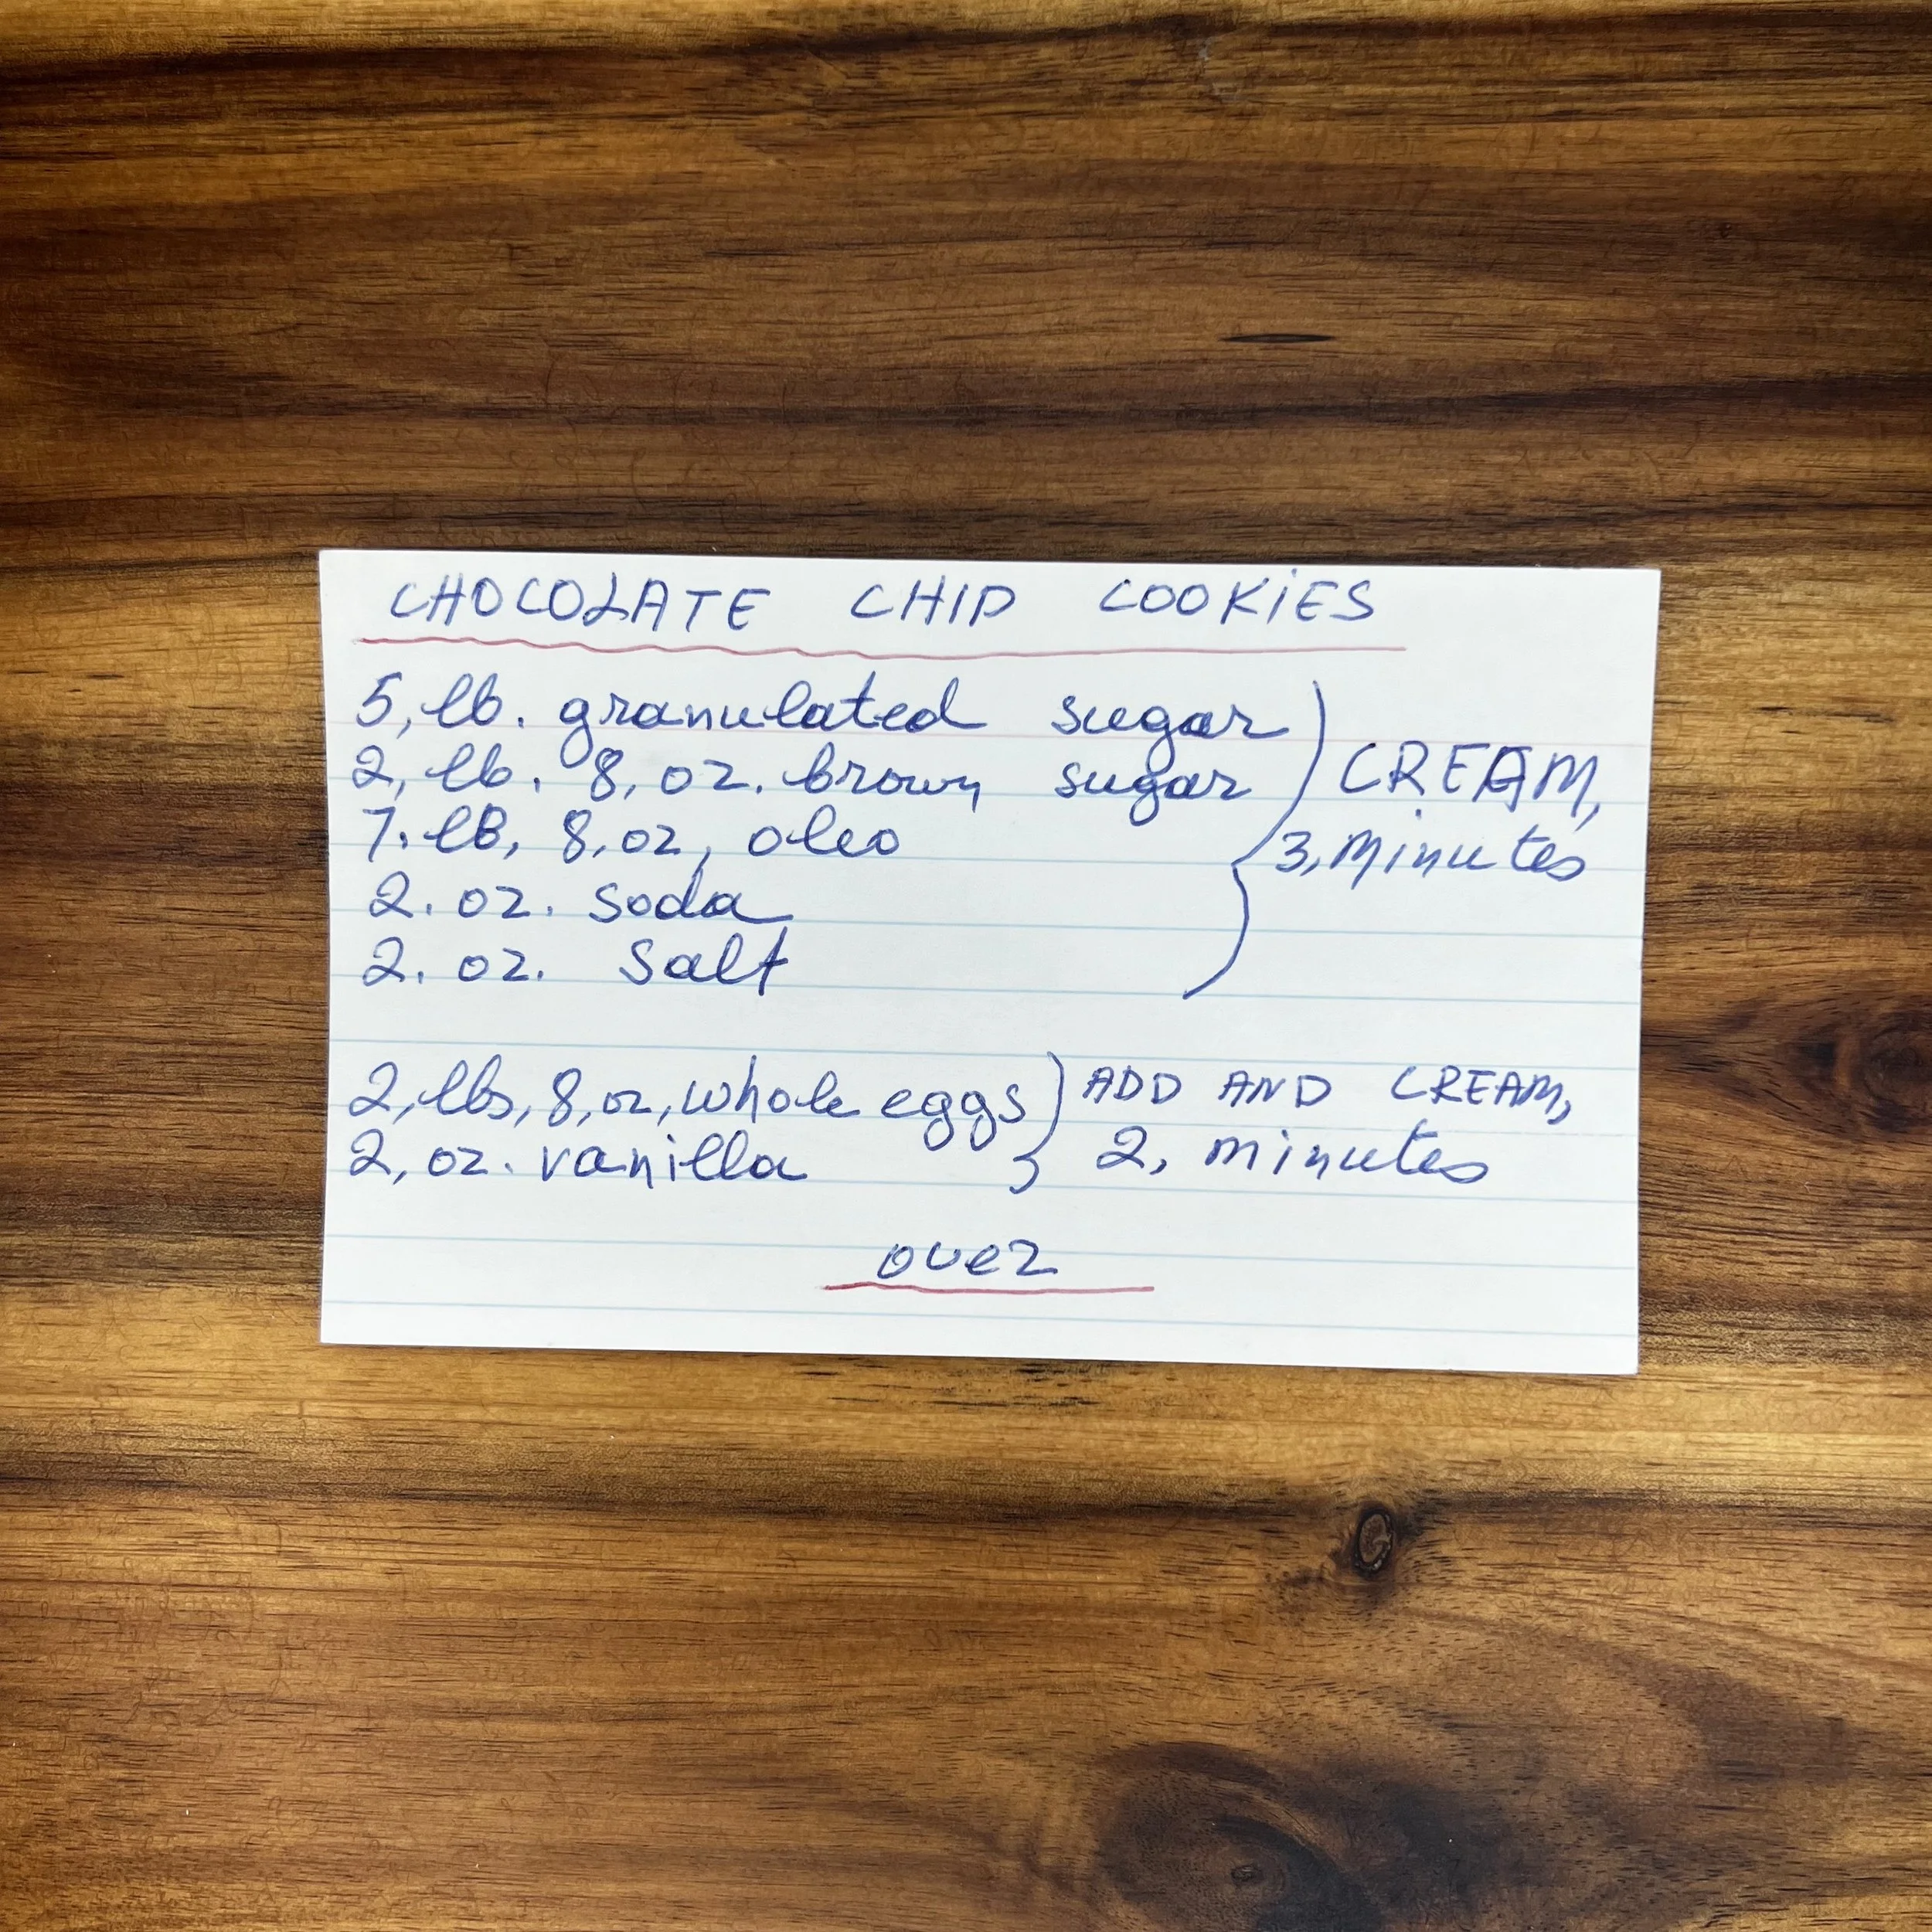 CHOCOLATE CHIP COOKIES
5, lb. granulated sugar
2, lb. 8, oz. brown sugar
7. lb, 8, oz, oleo
2. oz. soda
2. oz. Salt
CREAM,
3, minutes
2, lbs, 8, oz, whole eggs
2, oz. vanilla
ADD AND CREAM,
2, minutes
over